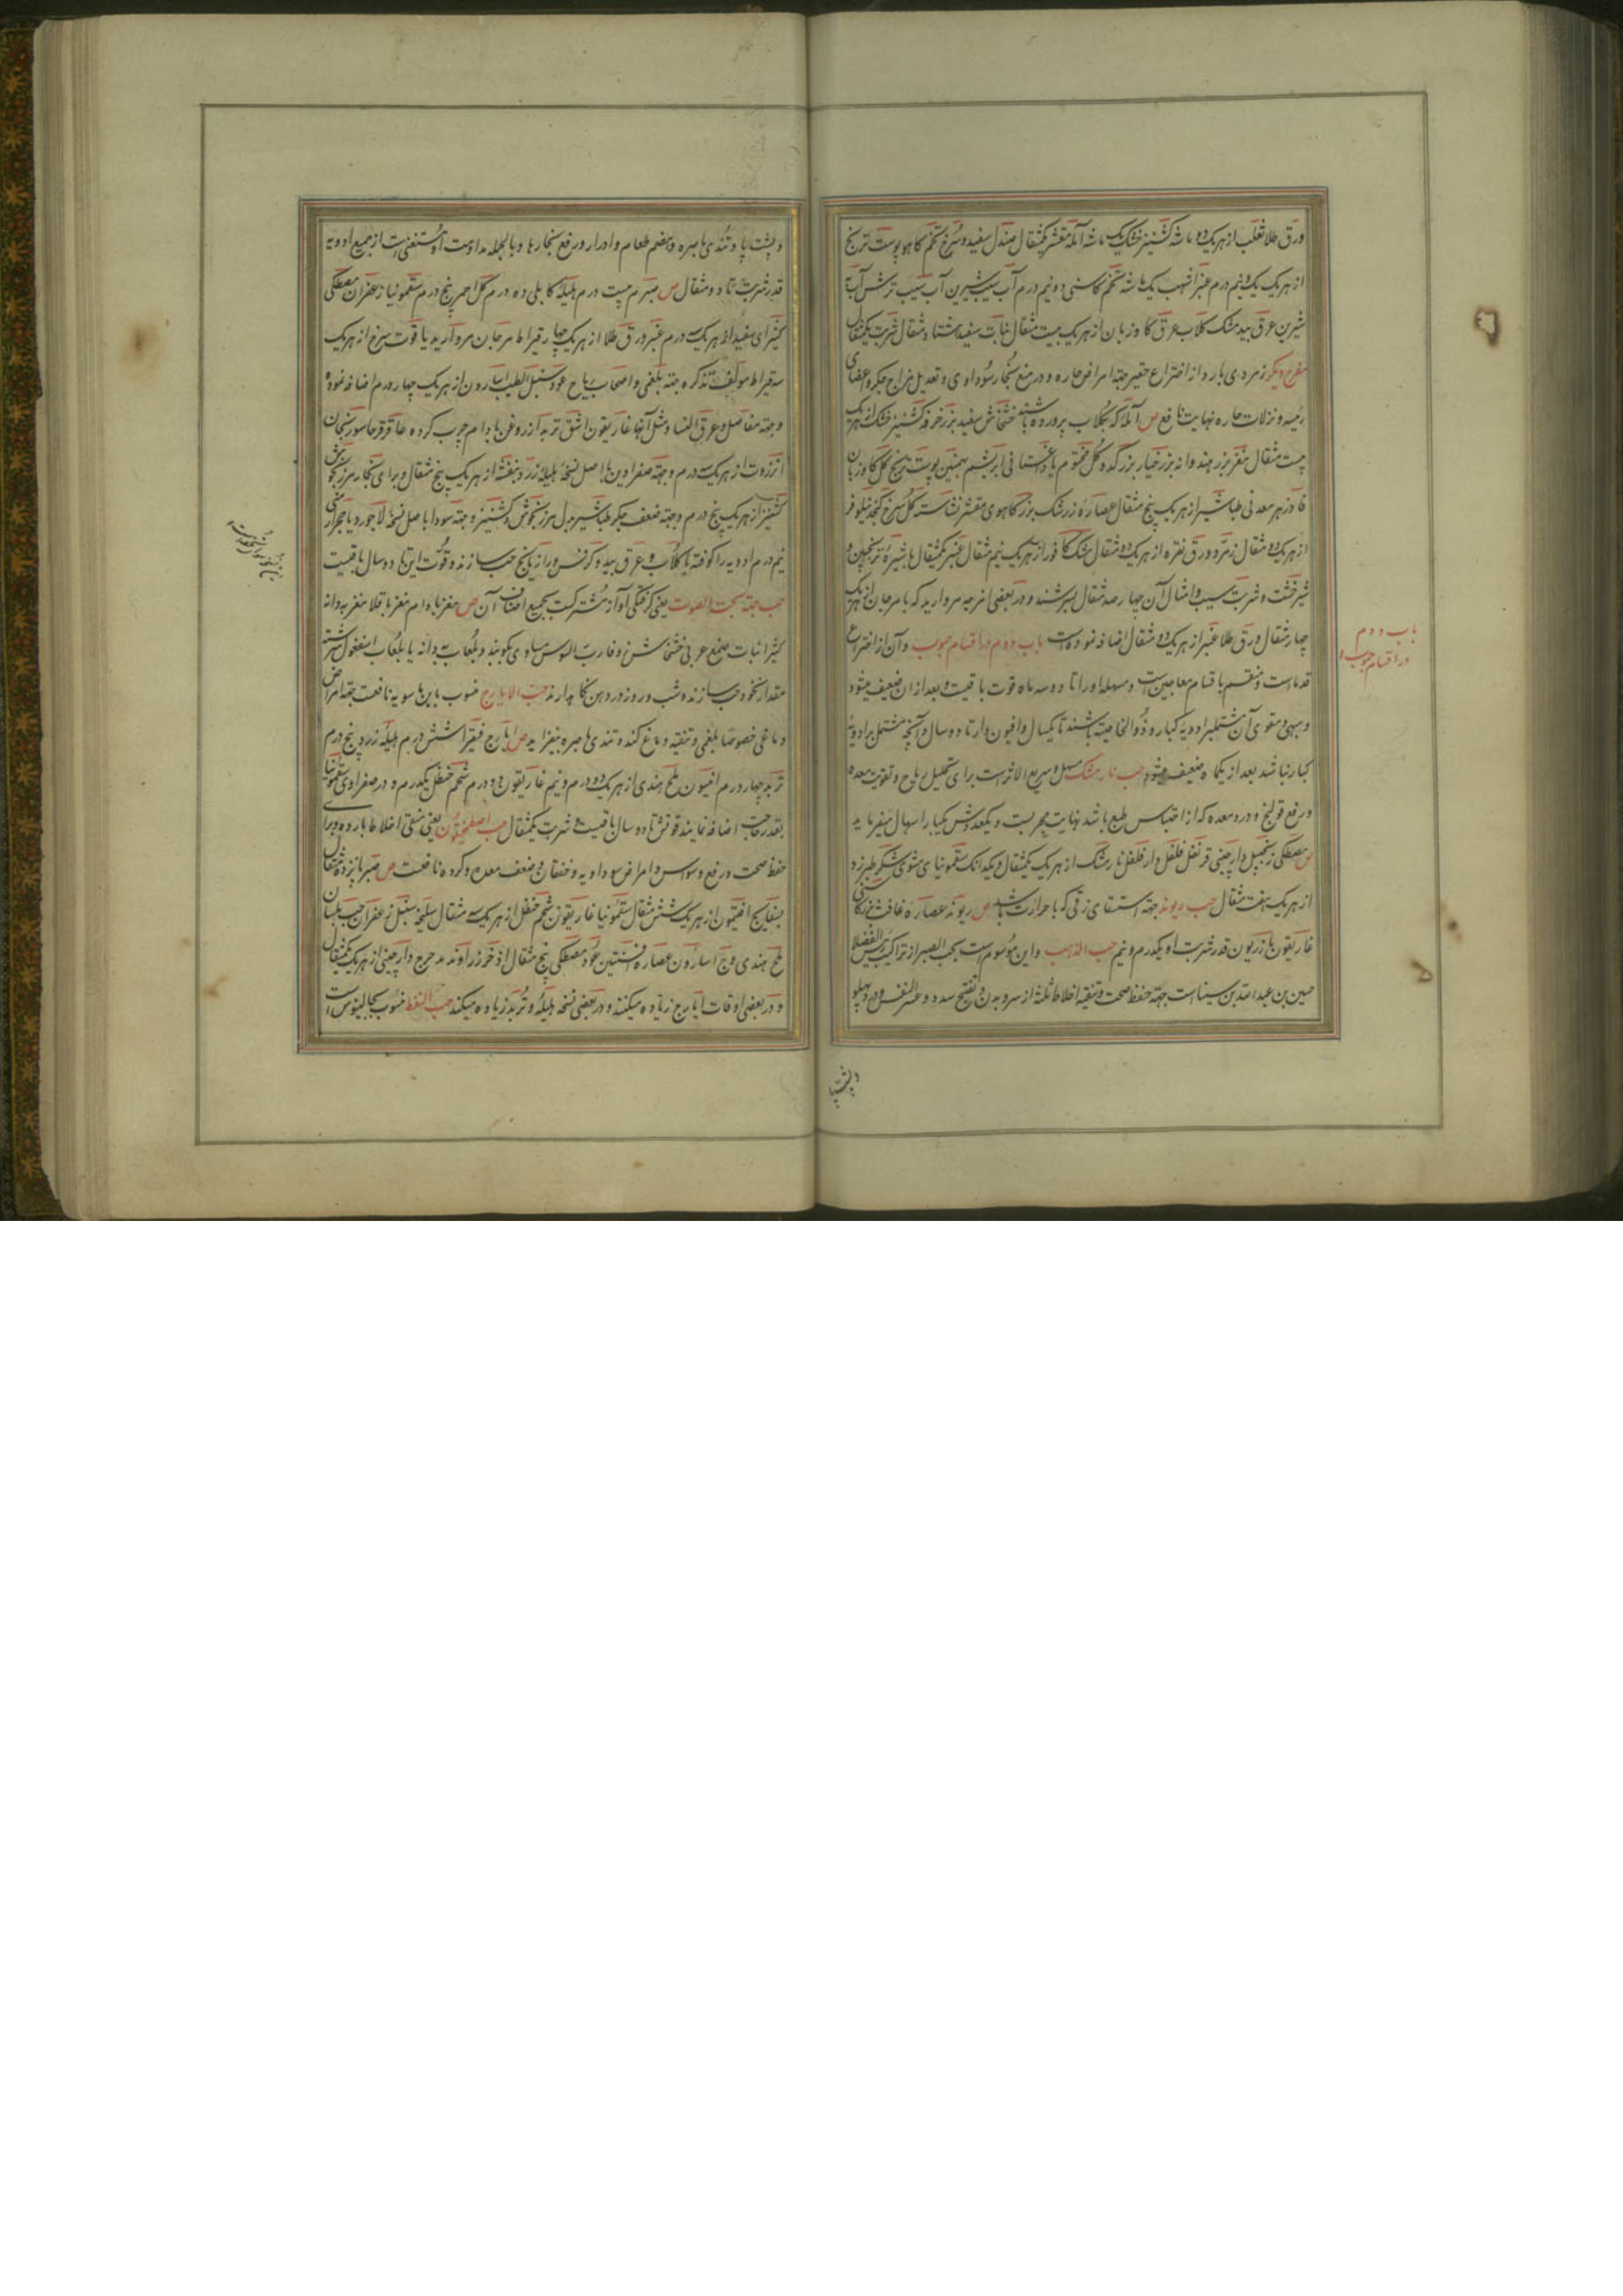 ورق طلا ثعلب از هریک دو ماشه کشنیز خشک یک ماشه آمله مقشر یکمثقال صندل سفید و سرخ تخم کاهو پوست ترنج
از هریک یک و نیم درم عنبر اشهب یک ماشه تخم کاسنی دو نیم درم آب سیب شیرین آب سیب ترش آب به
شیرین عرق بیدمشک کلاب عرق کاوزبان از هریک بیست مثقال نبات سفید هشتاد مثقال شربت یکمثقال
مفرح دیکر زمردی بارد از اختراع حقیر جهة امراض حاره و در منع بخار سوداوی و تعدیل مزاج جکر و اعضای
رئیسه و نزلات حاره نهایت نافع ص آمله که بکلاب پرورده باشند خشخاش سفید بزر خرفه کشنیز خشک از هریک
بیست مثقال مغز بزر هندوانه بزر خیار بزر کدو کل مختوم یا داغستانی ابریشم بهمنین پوست ترنج کل کاوزبان
فادزهر معدنی طباشیر از هریک پنج مثقال عصاره زرشک بزر کاهوی مقشر نشاسته کل سرخ کنجد نیلوفر
از هریک دو مثقال زمرد ورق نقره از هریک دو مثقال مشک کافور از هریک نیم مثقال عنبر یکمثقال با شیره ترنجبین و
شیرخشت و شربت سیب و امثال آن چهارصد مثقال بسرشند و در بعضی امزجه مروارید کهربا مرجان از هریک
چهار مثقال ورق طلا عنبر از هریک دو مثقال اضافه نموده است باب دوم در اقسام حبوب و آن از اختراع
قدماست و منقسم باقسام معاجین است و مسهله او را تا دو سه ماه قوت باقیست و بعد از ان ضعیف میشود
و مبهی و مقوی آن مشتمل بر ادویه کبار و ذوالخاصیته باشند تا یکسال و افیون دار تا دو سال و آنچه مشتمل بر ادویه
کبار نباشد بعد از یکماه ضعیف میشود حب نارمشک مسهل و سریع الاثر است برای تحلیل ریاح و تقویت معده
و رفع قولنج و درد معده که از احتباس طبع باشد نهایت مجربست و یکعددش یکبار اسهال میفرماید
ص مصطکی زنجبیل دارچینی قرنفل فلفل دارفلفل نارمشک از هریک یکمثقال و یکدانک سقمونیای مشوی شکر طبرزد
از هریک هفت مثقال حب ریوند جهة استسقای زقی که با حرارت باشد ص ریوند عصاره غافث بزر کاسنی
غاریقون مازریون قدر شربت او یکدرم و نیم حب الذهب و این موسوم است بحب الصبر از تراکیب رئیس الفضلا
حسین بن عبدالله بن سیناست جهة حفظ صحت و تنقیه اخلاط ثلثه از سر و بدن و تفتیح سدد و عسر النفس و درد پهلو
باب دوم
در اقسام حبوب
و پشت پا و تندی باصره و هضم طعام و ادرار و رفع بخارها و بالجمله مداومت او مستغنی است از جمیع ادویه
قدر شربت تا دو مثقال ص صبر بیست درم هلیله کابلی ده درم کل احمر پنج درم سقمونیا زعفران مصطکی
کتیرای سفید از هریک سه درم عنبر ورق طلا از هریک چهار قیراط مرجان مروارید یاقوت سرخ از هریک
سه قیراط مولف تذکره جهة بلغمی و اصحاب ریاح عود سنبل الطیب اسارون از هریک چهار درم اضافه نموده
و جهة مفاصل و عرق النسا و مثل آنها غاریقون اشق تربد از روغن بادام چرب کرده عاقرقرحا سورنجان
انزروت از هریک سه درم و جهة صفراوین با اصل نسخه هلیله زرد بنفشه از هریک پنج مثقال و برای بخار مرزنجوش
کشنیز از هریک پنج درم و جهة ضعف جکر طباشیر بدل مرزنجوش و کشنیز و جهة سودا با اصل نسخه لاجورد یا حجر ارمنی
نیم درم ادویه را کوفته با کلاب و عرق بید و کرفس و رازیانج حب سازند و قوت این تا دو سال باقیست
حب جهة بحت الصوت یعنی کرفتکی آواز مشترکست بجمیع اصناف آن ص مغز بادام مغز باقلا مغز بهدانه
کتیرا نبات صمغ عربی خشخاش نشا و فارب السوس مساوی بکوبند و بلعاب بهدانه یا بلعاب اسفغول سرشته
مقدار نخود حب سازند و شب و روز در دهن نکاهدارند حب الایارج منسوب بابن ماسویه نافعست جهة امراض
دماغی خصوصا بلغمی و تنقیه دماغ کند و تندی باصره بیفزاید ص ایارج فیقرا شش درم هلیله زرد پنج درم
تربد چهار درم افتیمون ملح هندی از هریک دو درم و نیم غاریقون دو درم شحم حنظل یکدرم و در صفراوی سقمونیا
بقدر حاجت اضافه نمایند قوتش تا دو سال باقیست شربت یکمثقال حب اصطمخیقون یعنی منقی اخلاط بارده و برای
حفظ صحت و رفع وسواس و امراض سوداویه و خفقان و ضعف معده و کرده نافعست ص صبر پانزده مثقال
بسفایج افتیمون از هریک شش مثقال سقمونیا غاریقون شحم حنظل از هریک سه مثقال سلیخه سنبل زعفران حب بلسان
ملح هندی وج اسارون عصاره افسنتین عود مصطکی پنج مثقال اذخر زراوند مدحرج دارچینی از هریک یکمثقال
و در بعضی اوقات ایارج زیاده میکنند و در بعضی نسخه هلیله و تربد زیاده میکنند حب النفط منسوب بجالینوس است
و پشت پا